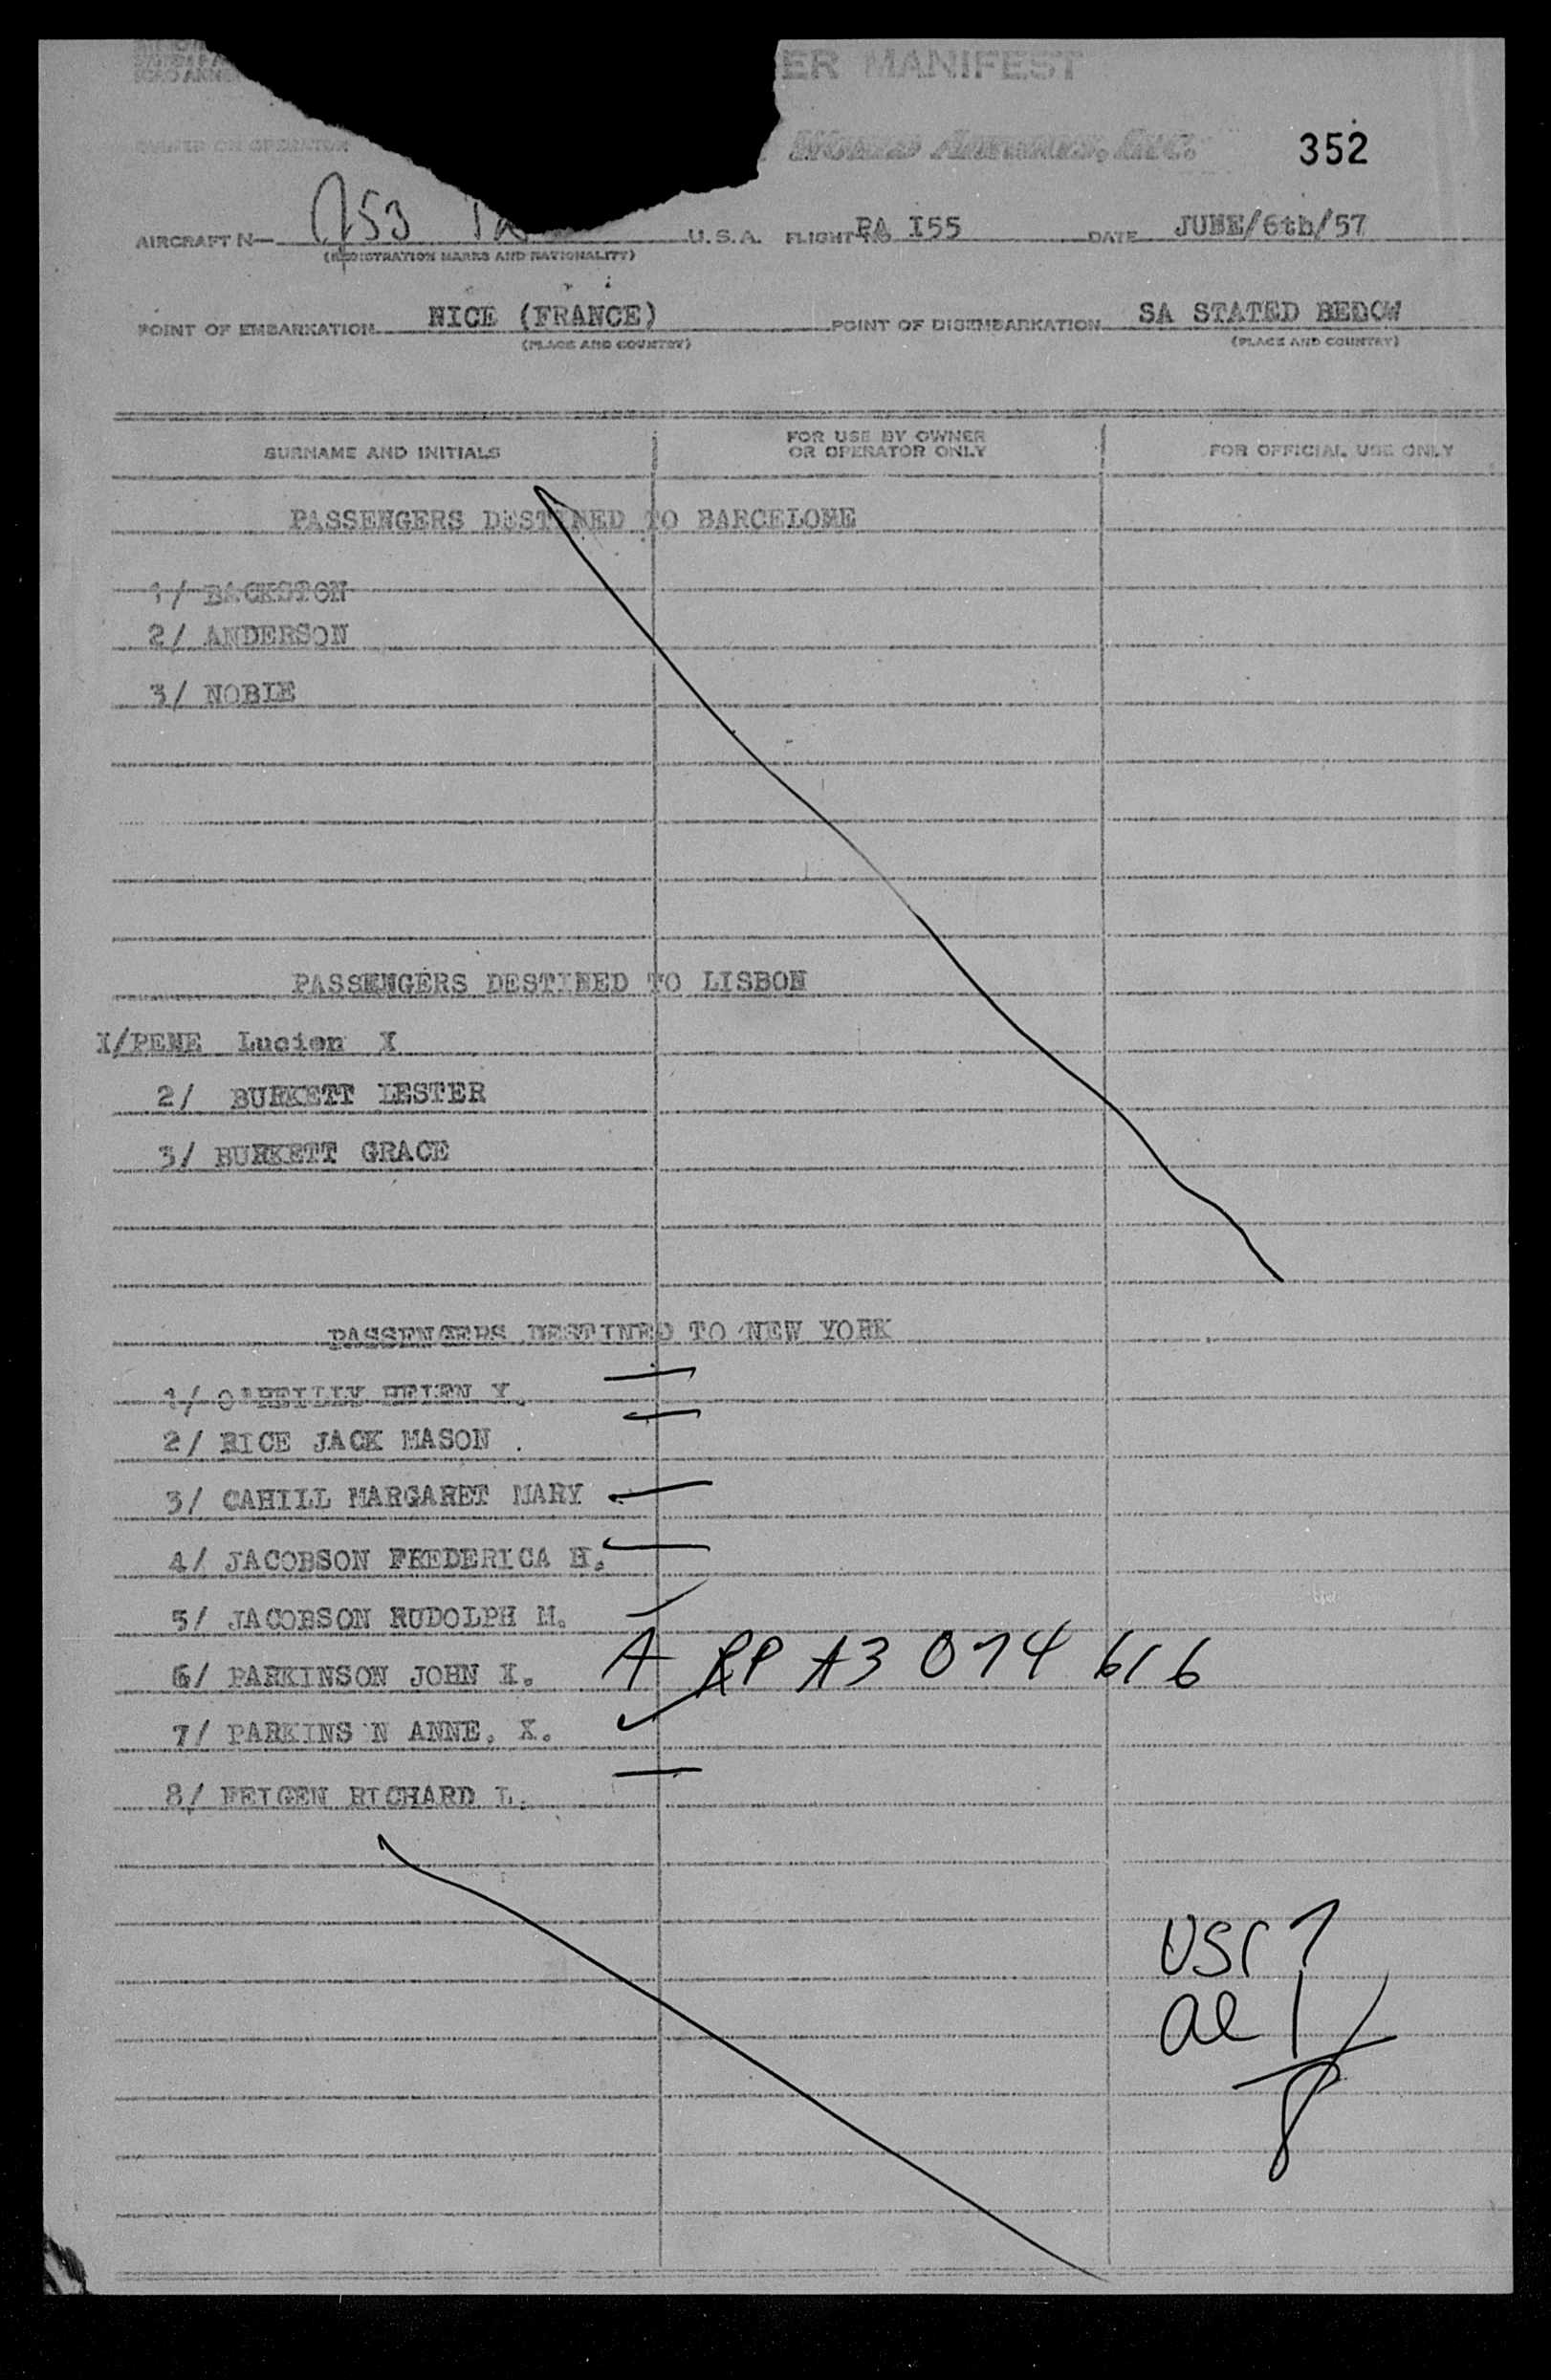 ER MANIFEST
OWNER OR OPERATOR World Airways, Inc. 352
AIRCRAFT N— U.S.A. FLIGHT NO PA I55 DATE JUNE/6th/57
(REGISTRATION MARKS AND NATIONALITY)
POINT OF EMBARKATION NICE (FRANCE) POINT OF DISEMBARKATION SA STATED BEDOW
(PLACE AND COUNTRY) (PLACE AND COUNTRY)
SURNAME AND INITIALS FOR USE BY OWNER OR OPERATOR ONLY FOR OFFICIAL USE ONLY
PASSENGERS DESTINED TO BARCELONE
1/ BACKSTON
2/ ANDERSON
3/ NOBLE
PASSENGERS DESTINED TO LISBON
I/PENE Lucien X
2/ BURKETT LESTER
3/ BURKETT GRACE
PASSENGERS DESTINED TO NEW YORK
1/ O'REILLY HELEN Y.
2/ RICE JACK MASON .
3/ CAHILL MARGARET MARY
4/ JACOBSON FREDERICA H.
5/ JACOBSON RUDOLPH M.
6/ PARKINSON JOHN X. A RP A3 074 616
7/ PARKINS N ANNE. X.
8/ FEIGEN RICHARD L.
USC 7
al 1
8